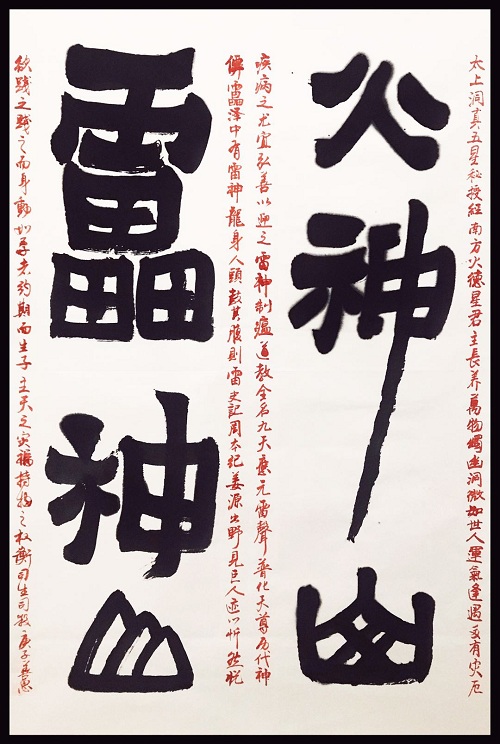 太上洞真五星秘授经南方火德星君主長养萬物燭幽洞微如世人運氣逢遇多有灾厄
火神山
疾病之尤宜弘善以迎之雷神制瘟道教全名九天應元雷聲普化天尊历代神
傳靁澤中有雷神龍身人頭鼓其腹則雷史記周本纪姜源出野見巨人迹心忻然悦
靁神山
欲踐之踐之而身動如孕者约期而生子主天之灾福持物之权衡司生司殺庚子